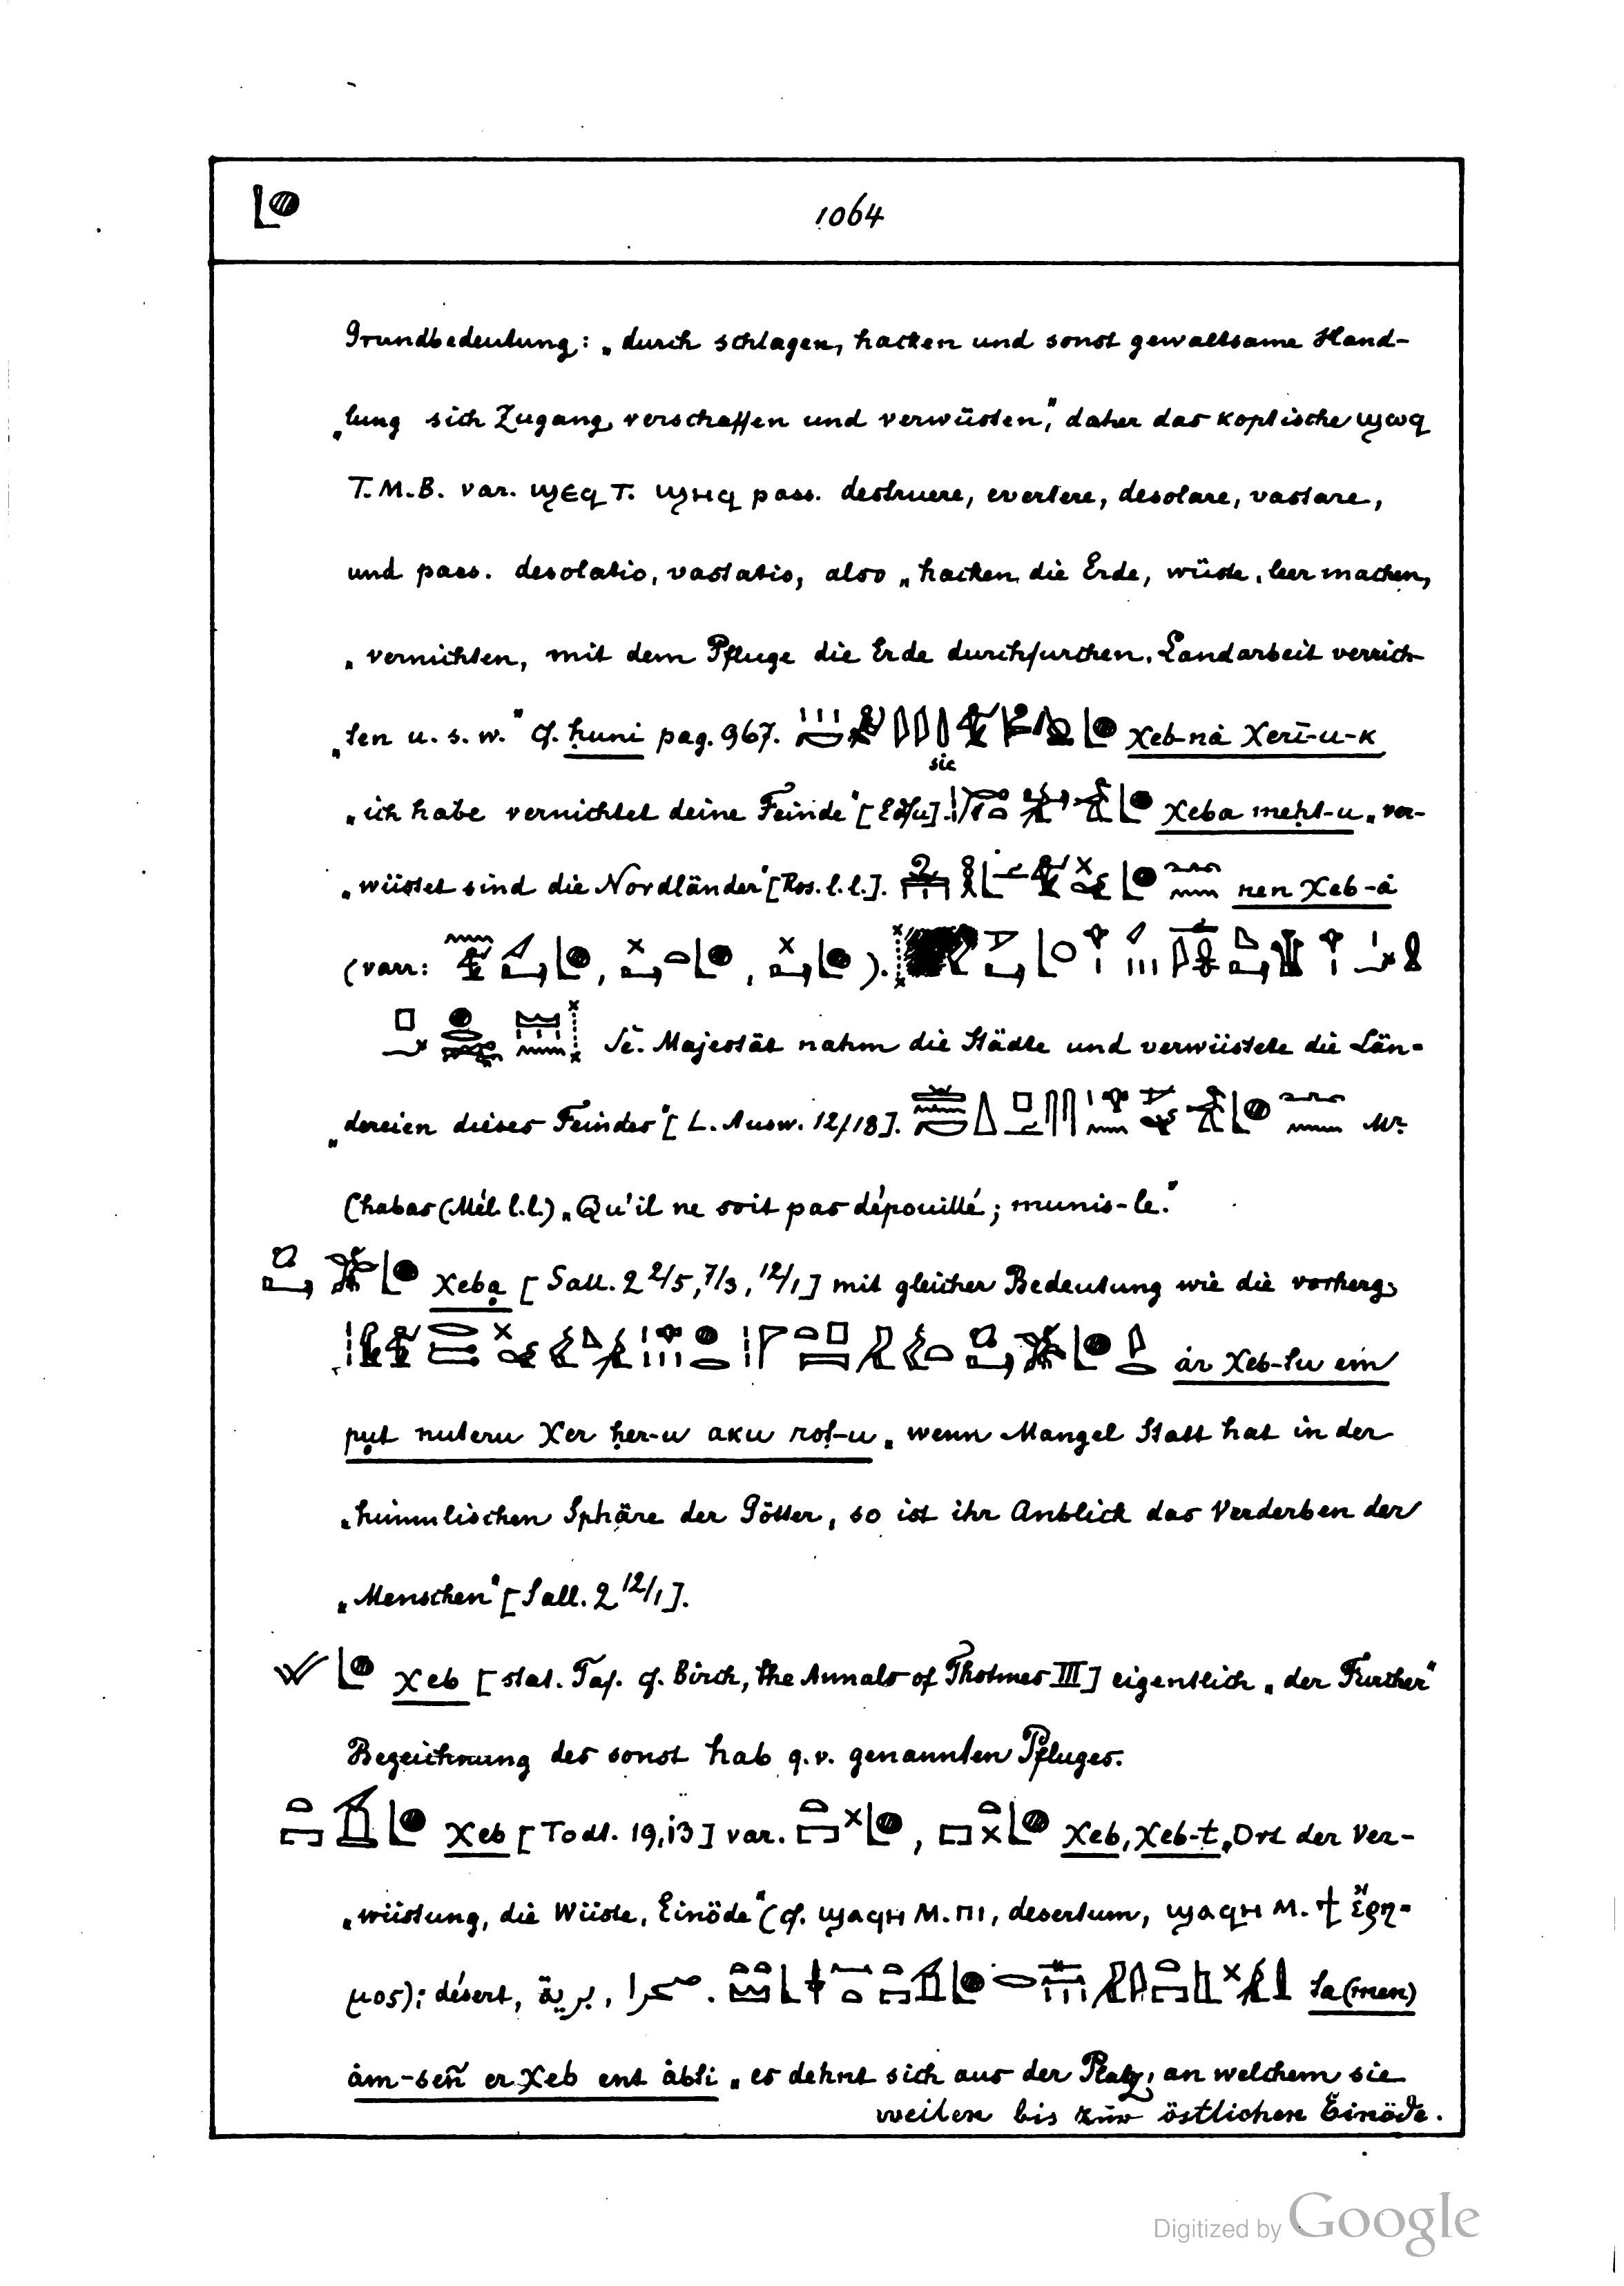 1064
Grundbedeutung: „durch schlagen, hacken und sonst gewaltsame Hand-
„lung sich Zugang verschaffen und verwüsten," daher das koptische ϣⲱϥ
T. M. B. var. ϣⲉϥ T. ϣⲏϥ pass. destruere, evertere, desolare, vastare,
und pass. desolatio, vastatio, also „hacken die Erde, wüste, leer machen,
„vernichten, mit dem Pfluge die Erde durchfurchen. Landarbeit verrich-
„ten u. s. w." cf. ḥuni pag. 967. χeb-nȧ χerī-u-k
sic
„ich habe vernichtet deine Feinde" [Edfu]. χeba meḥt-u „ver-
„wüstet sind die Nordländer" [Ros. l. l.]. nen χeb-ȧ
(varr: , , ).
Se. Majestät nahm die Städte und verwüstete die Län-
„dereien dieses Feindes" [L. Ausw. 12/18]. Mr.
Chabas (Mél. l. l.) „Qu'il ne soit pas dépouillé; munis-le."
χebạ [Sall. 2 2/5, 7/3, 12/1] mit gleicher Bedeutung wie die vorherg.
ȧr χeb-tu em
put nuteru χer ḥer-u aku rot-u „wenn Mangel Statt hat in der
„himmlischen Sphäre der Götter, so ist ihr Anblick das Verderben der
„Menschen" [Sall. 2 12/1].
χeb [stat. Taf. cf. Birch, the Annals of Thotmes III] eigentlich „der Furcher"
Bezeichnung des sonst hab q.v. genannten Pfluges.
χeb [Todt. 19,13] var. , χeb, χeb-t „Ort der Ver-
„wüstung, die Wüste, Einöde" (cf. ϣⲁϥⲏ M. ⲡⲓ, desertum, ϣⲁϥⲏ M. ϯ ἔρη-
μος); désert, برية, صحرا. ta (men)
ȧm-sen er χeb ent ȧbti „es dehnt sich aus der Platz, an welchem sie
weilen bis zur östlichen Einöde.
Digitized by Google